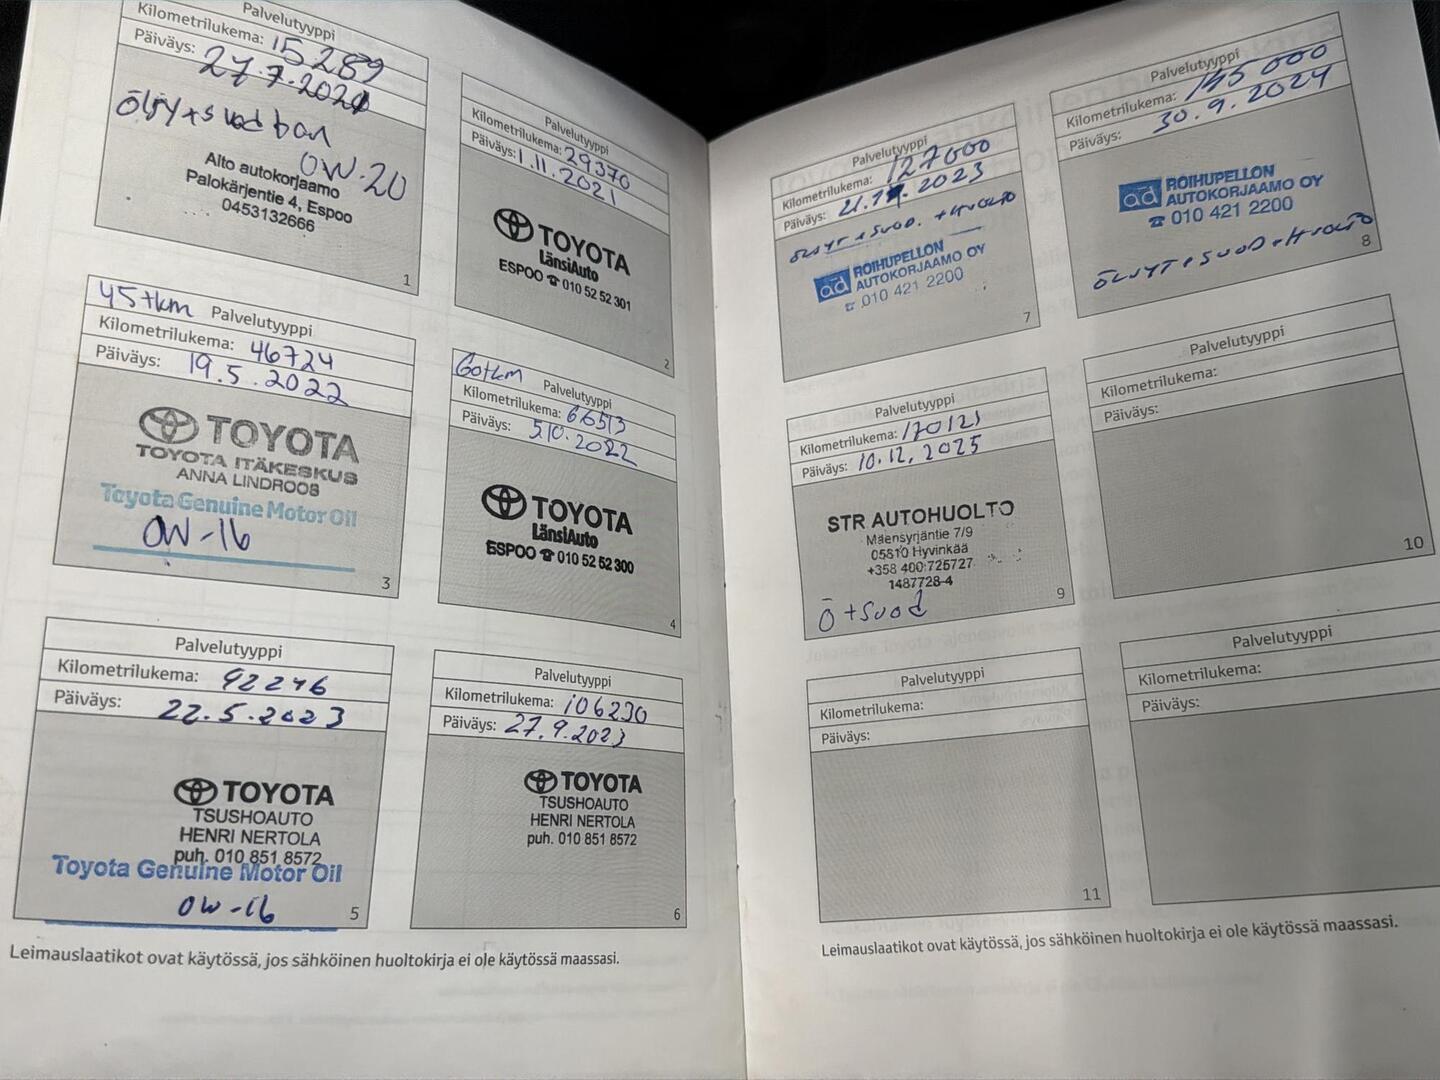 Palvelutyyppi
Kilometrilukema: 15289
Päiväys: 27.7.2021
Alto autokorjaamo
OW-20
Palokärjentie 4, Espoo
0453132666
1
Palvelutyyppi
Kilometrilukema: 29370
Päiväys: 1.11.2021
TOYOTA
LänsiAuto
ESPOO ☎ 010 52 52 301
2
45tkm Palvelutyyppi
Kilometrilukema: 46724
Päiväys: 19.5.2022
TOYOTA
TOYOTA ITÄKESKUS
ANNA LINDROOS
Toyota Genuine Motor Oil
OW-16
3
60tkm Palvelutyyppi
Kilometrilukema: 66513
Päiväys: 5.10.2022
TOYOTA
LänsiAuto
ESPOO ☎ 010 52 52 300
4
Palvelutyyppi
Kilometrilukema: 92246
Päiväys: 22.5.2023
TOYOTA
TSUSHOAUTO
HENRI NERTOLA
puh. 010 851 8572
Toyota Genuine Motor Oil
OW-16
5
Palvelutyyppi
Kilometrilukema: 106230
Päiväys: 27.9.2023
TOYOTA
TSUSHOAUTO
HENRI NERTOLA
puh. 010 851 8572
6
Leimauslaatikot ovat käytössä, jos sähköinen huoltokirja ei ole käytössä maassasi.
Palvelutyyppi
Kilometrilukema: 127000
Päiväys:
ÖLJYT + SUOD. + HUOLTO
ad ROIHUPELLON
AUTOKORJAAMO OY
☎ 010 421 2200
7
Palvelutyyppi
Kilometrilukema: 145 000
Päiväys: 30.9.2024
ad ROIHUPELLON
AUTOKORJAAMO OY
☎ 010 421 2200
ÖLJYT + SUOD + HUOLTO
8
Palvelutyyppi
Kilometrilukema: 170121
Päiväys: 10.12.2025
STR AUTOHUOLTO
Mäensyrjäntie 7/9
05810 Hyvinkää
+358 400 725727
1487728-4
Ö + suod
9
Palvelutyyppi
Kilometrilukema:
Päiväys:
10
Palvelutyyppi
Kilometrilukema:
Päiväys:
11
Palvelutyyppi
Kilometrilukema:
Päiväys:
Leimauslaatikot ovat käytössä, jos sähköinen huoltokirja ei ole käytössä maassasi.